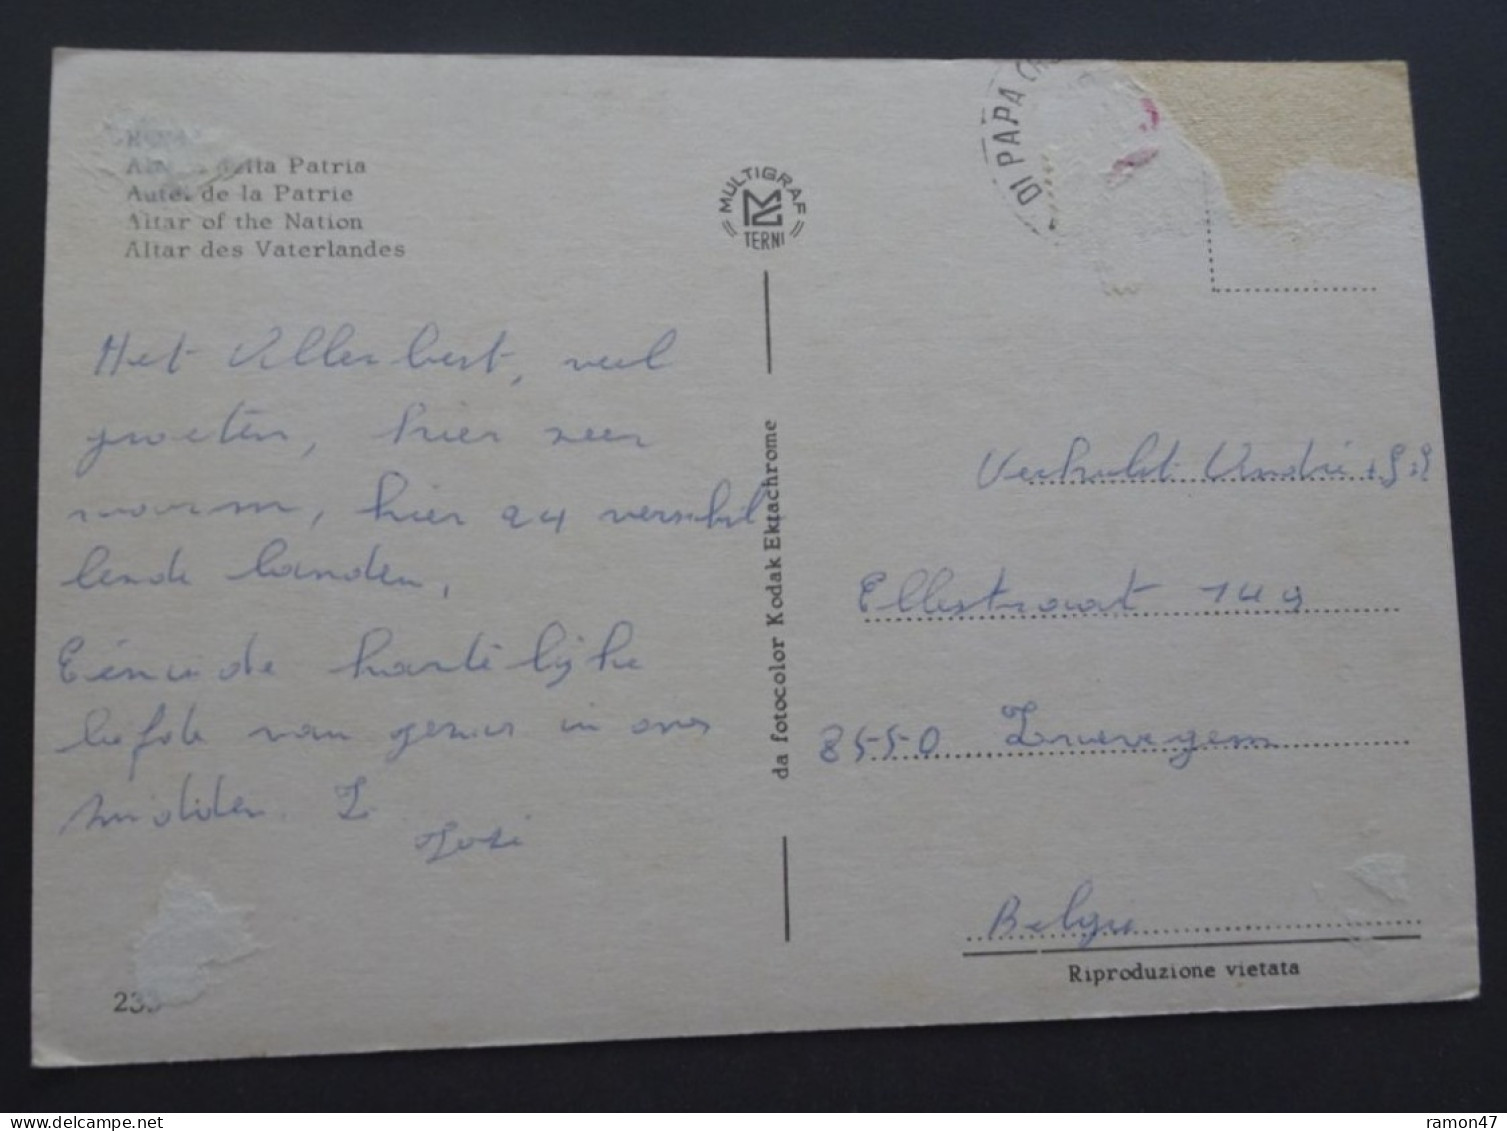 della Patria
Autel de la Patrie
Altar of the Nation
Altar des Vaterlandes
MULTIGRAF
TERNI
DI PAPA
Het Allerbest, veel
groeten, hier zeer
warm, hier 24 verschil
lende landen,
hartelijke
liefde van in ons
midden.
da fotocolor Kodak Ektachrome
Ellestraat 149
8550 Zwevegem
Belgie
Riproduzione vietata
ramon47